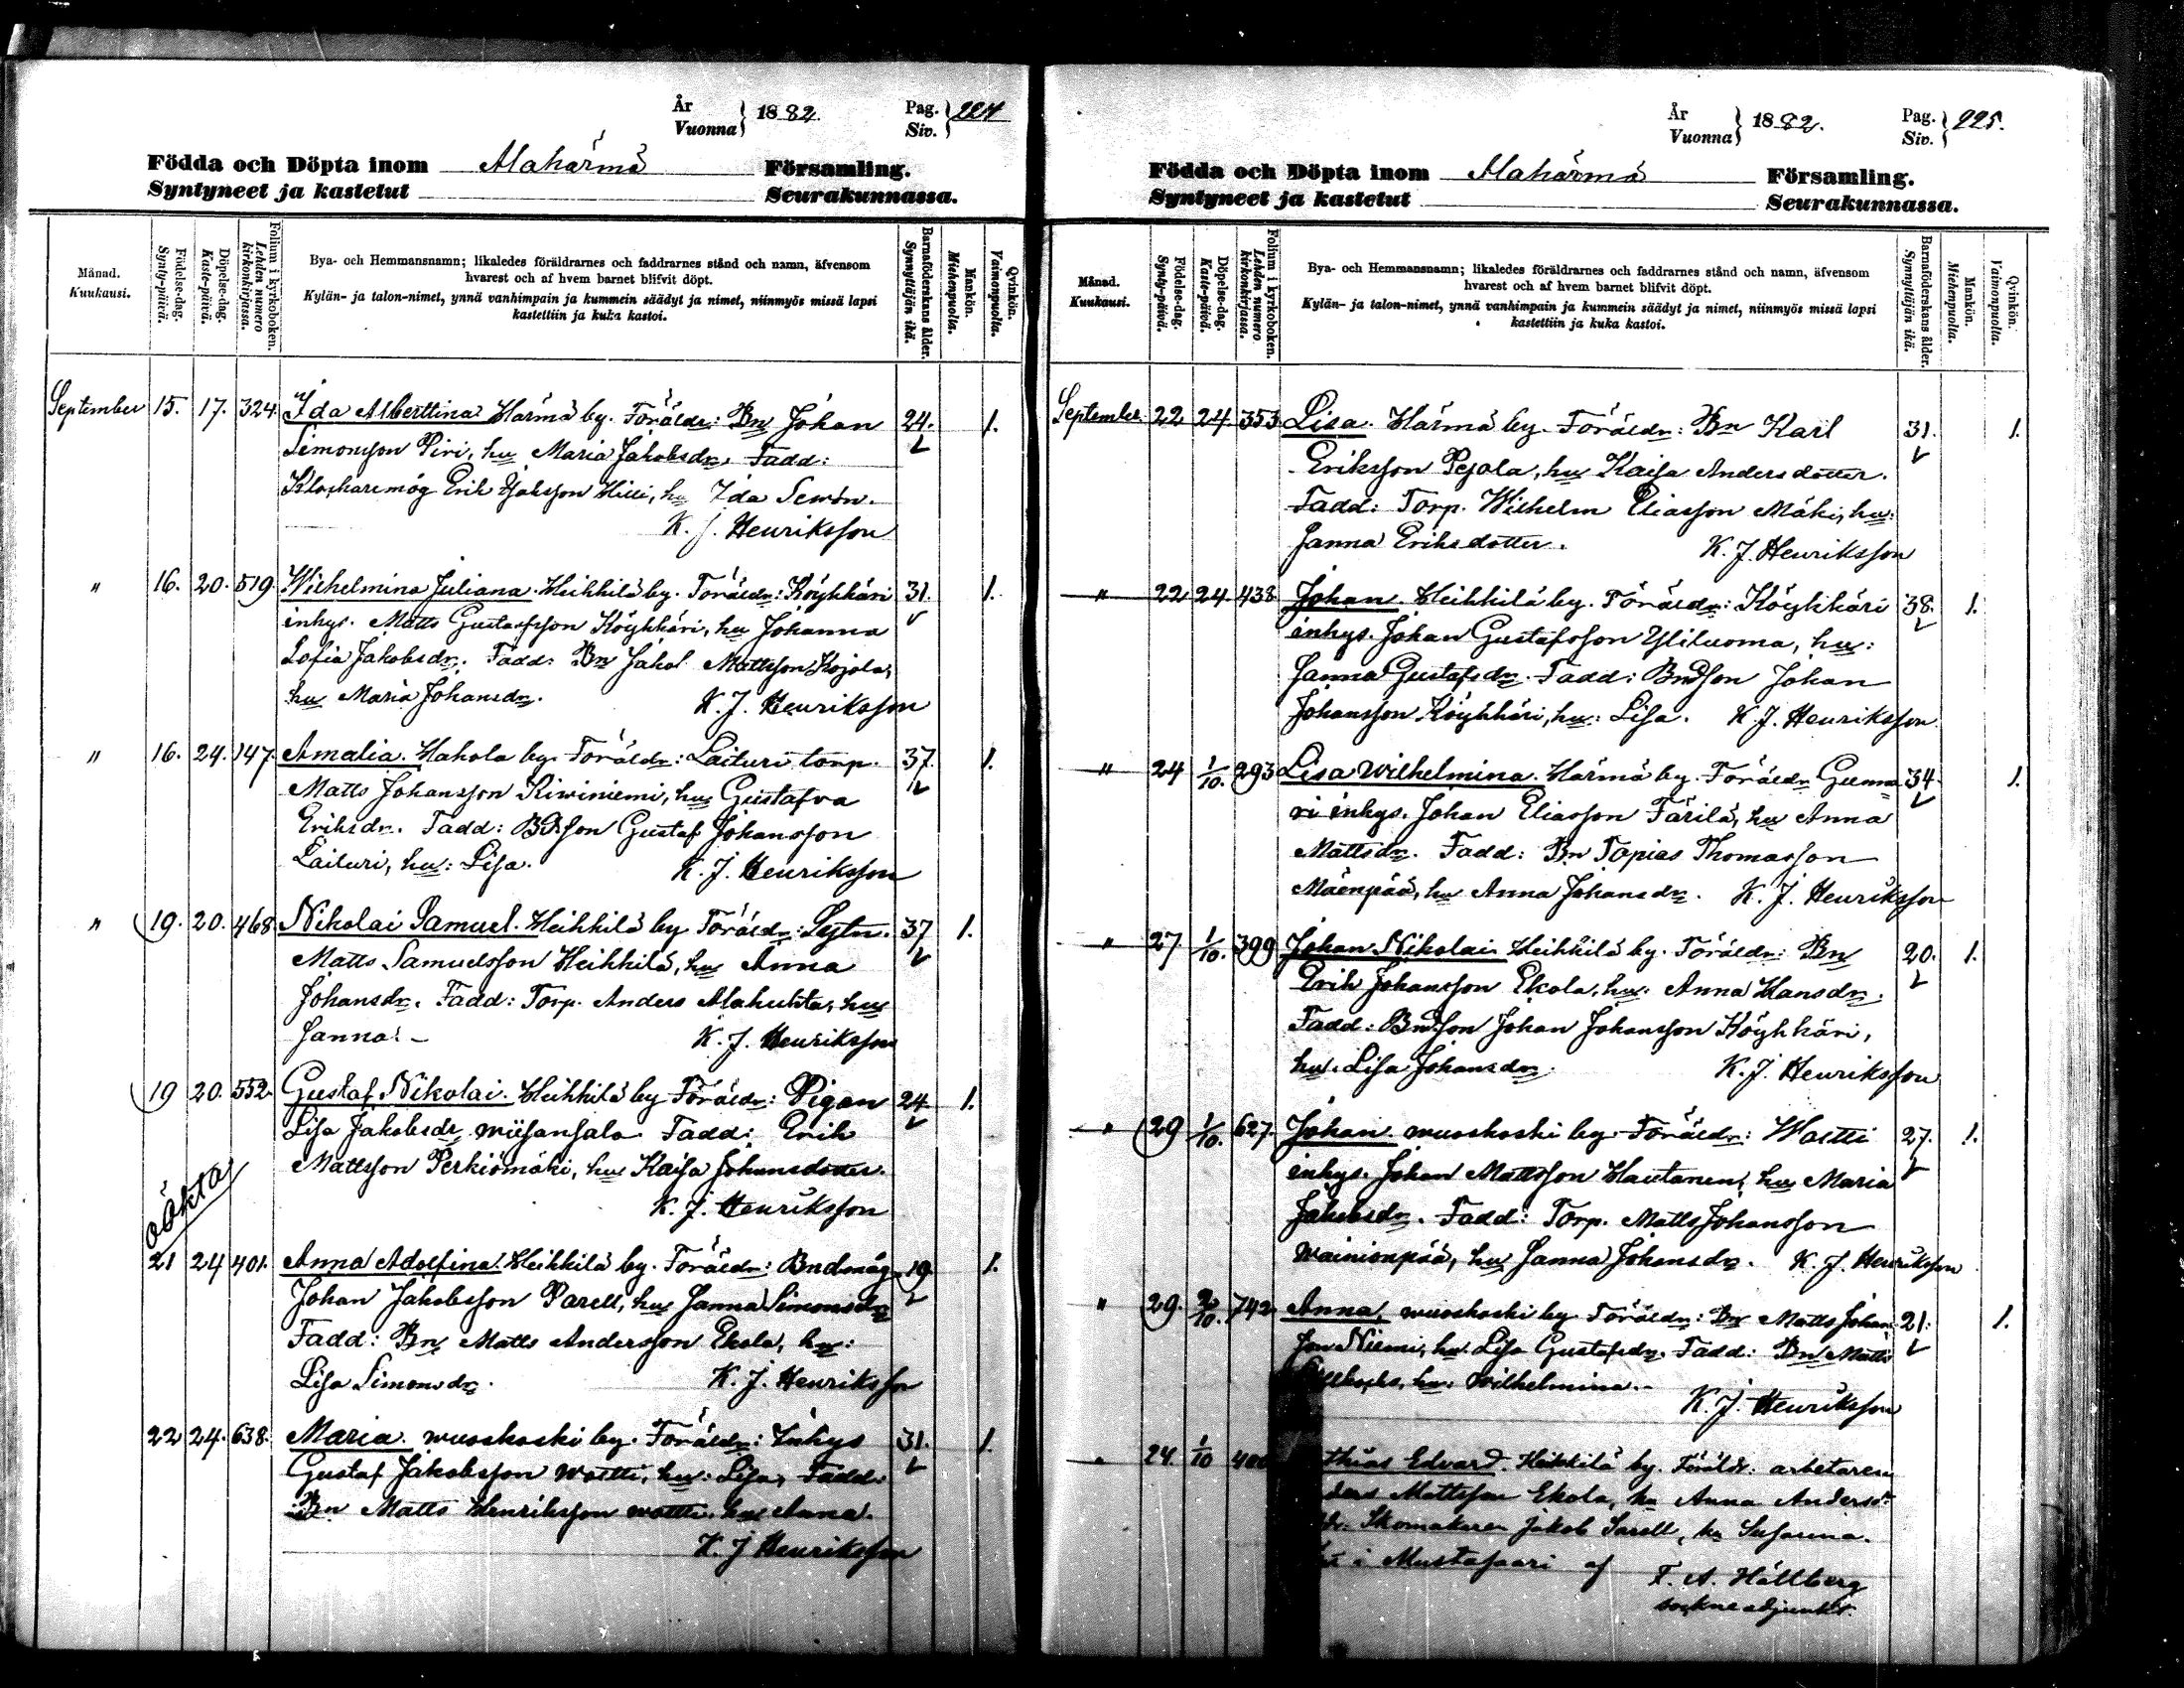 År
Vuonna } 1882. Pag.
Siv. } 224
Födda och Döpta inom Alahärmä Församling.
Syntyneet ja kastetut Seurakunnassa.
Månad.
Kuukausi.
Födelse-dag.
Synty-päivä.
Döpelse-dag.
Kaste-päivä.
Folium i kyrkoboken.
Lehden numero kirkonkirjassa.
Bya- och Hemmansnamn; likaledes föräldrarnes och faddrarnes stånd och namn, äfvensom
hvarest och af hvem barnet blifvit döpt.
Kylän- ja talon-nimet, ynnä vanhimpain ja kummein säädyt ja nimet, niinmyös missä lapsi
kastettiin ja kuka kastoi.
Barnaföderskans ålder.
Synnyttäjän ikä.
Mankön.
Miehenpuolta.
Qvinkön.
Vaimonpuolta.
September 15. 17. 324. Ida Alberttina Härmä by. Föräldr: Bn Johan 24. 1.
Simonsson Piri, hu Maria Jakobsdr. Fadd:
Erik Hilli, hu Ida
K. J. Henriksson
" 16. 20. 519. Wilhelmina Juliana. Heikkilä by. Föräldr: Köykkäri 31. 1.
inhys. Matts Gustafsson Köykkäri, hu Johanna
Sofia Jakobsdr. Fadd: Bn Jakob Mattsson Kojola,
hu Maria Johansdr. K. J. Henriksson
" 16. 24. 147. Amalia. Hakola by. Föräldr: Laituri torp. 37. 1.
Matts Johansson Kiwiniemi, hu Gustafva
Eriksdr. Fadd: Bdson Gustaf Johansson
Laituri, hu: Lisa. K. J. Henriksson
" 19. 20. 468 Nikolai Samuel. Heikkilä by. Föräldr: Sytn. 37 1.
Matts Samuelsson Heikkilä, hu Anna
Johansdr. Fadd: Torp. Anders Alahuhta, hu
Sanna. - K. J. Henriksson
19 20. 552 Gustaf Nikolai. Heikkilä by Föräldr: Pigan 24 1.
Lisa Jakobsdr Fadd: Erik
Mattsson Perkiömäki, hu Kaisa Johansdotter.
K. J. Henriksson
oäkta
21 24 401. Anna Adolfina. Heikkilä by. Föräldr: Bndmåg 19. 1.
Johan Jakobsson Parell, hu Sanna Simonsdr
Fadd: Bn Matts Andersson Ekola, hu:
Lisa Simonsdr. K. J. Henriksson
22 24. 638. Maria. wuoskoski by. Föräldr: Inhys 31. 1.
Gustaf Jakobsson woltti, hu: Lisa, Fadd.
Bn Matts Henriksson woltti. hu Anna.
K. J Henriksson
År
Vuonna } 1882. Pag.
Siv. } 225.
Födda och Döpta inom Alahärmä Församling.
Syntyneet ja kastetut Seurakunnassa.
Månad.
Kuukausi.
Födelse-dag.
Synty-päivä.
Döpelse-dag.
Kaste-päivä.
Folium i kyrkoboken.
Lehden numero kirkonkirjassa.
Bya- och Hemmansnamn; likaledes föräldrarnes och faddrarnes stånd och namn, äfvensom
hvarest och af hvem barnet blifvit döpt.
Kylän- ja talon-nimet, ynnä vanhimpain ja kummein säädyt ja nimet, niinmyös missä lapsi
kastettiin ja kuka kastoi.
Barnaföderskans ålder.
Synnyttäjän ikä.
Mankön.
Miehenpuolta.
Qvinkön.
Vaimonpuolta.
September 22 24. 353 Lisa. Härmä by. Föräldr: Bn Karl 31. 1.
Eriksson Pejala, hu Kaisa Andersdotter.
Fadd: Torp. Wilhelm Eliasson Mäki, hu:
Sanna Eriksdotter. K. J. Henriksson
" 22 24. 438 Johan. Heikkilä by. Föräldr: Köykkäri 38. 1.
inhys. Johan Gustafsson Yliluoma, hu:
Sanna Gustafsdr. Fadd: Bndson Johan
Johansson Köykkäri, hu: Lisa. K. J. Henriksson.
" 24 1/10. 293 Lisa Wilhelmina. Härmä by. Föräldr Gunna= 34. 1.
ri inhys. Johan Eliasson Färilä, hu Anna
Mattsdr. Fadd: Bn Tapias Thomasson
Mäenpää, hu Anna Johansdr. K. J. Henriksson
" 27 1/10. 399 Johan Nikolai. Heikkilä by. Föräldr: Bn 20. 1.
Erik Johansson Ekola, hu. Anna Hansdr.
Fadd: Bndson Johan Johansson Köykkäri,
hu. Lisa Johansdr. K. J. Henriksson
" 29 1/10. 627. Johan. wuoskoski by. Föräldr: Woltti 27. 1.
inhys. Johan Mattsson Hautanen, hu Maria
Jakobsdr. Fadd: Torp. Matts Johansson
Wainionpää, hu Sanna Johansdr. K. J. Henriksson
" 29. /10. 742 Anna, wuoskoski by. Föräldr: Bn Matts Johan= 21. 1.
son Niemi, hu. Lisa Gustafsdr. Fadd: Bn Matts
hu: Wilhelmina.
K. J. Henriksson
" 24. 1/10 400 thias Edvard. Heikkilä by. Föräldr: arbetaren
ders Mattsson Ekola, hu Anna Andersdr
dr. Skomakaren Jakob Sarell, hu Susanna.
i Mustasaari af F. A. Hållberg
sockne adjunkt.